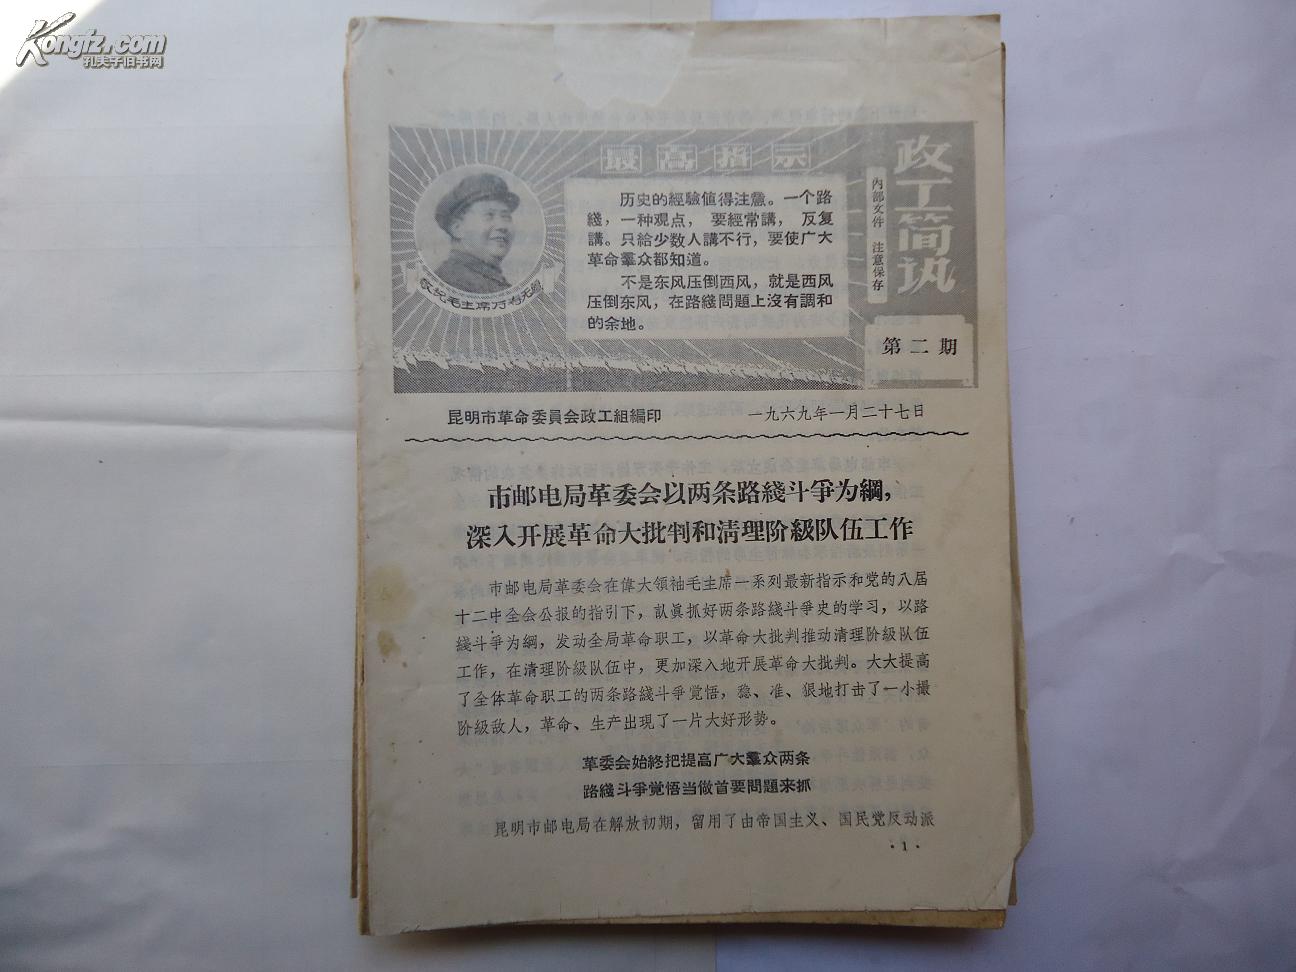 Kongfz.com
孔夫子旧书网
最高指示
历史的經驗值得注意。一个路
綫，一种观点，要經常講，反复
講。只給少数人講不行，要使广大
革命羣众都知道。
不是东风压倒西风，就是西风
压倒东风，在路綫問題上沒有調和
的余地。
敬祝毛主席万寿无疆
政工简讯
內部文件 注意保存
第二期
昆明市革命委員会政工組編印 一九六九年一月二十七日
市邮电局革委会以两条路綫斗爭为綱，
深入开展革命大批判和清理阶級队伍工作
市邮电局革委会在偉大領袖毛主席一系列最新指示和党的八届
十二中全会公报的指引下，認眞抓好两条路綫斗爭史的学习，以路
綫斗爭为綱，发动全局革命职工，以革命大批判推动清理阶級队伍
工作，在清理阶級队伍中，更加深入地开展革命大批判。大大提高
了全体革命职工的两条路綫斗爭覚悟，稳、准、狠地打击了一小撮
阶級敌人，革命、生产出现了一片大好形势。
革委会始終把提高广大羣众两条
路綫斗爭覚悟当做首要問題来抓
昆明市邮电局在解放初期，留用了由帝国主义、国民党反动派
·1·